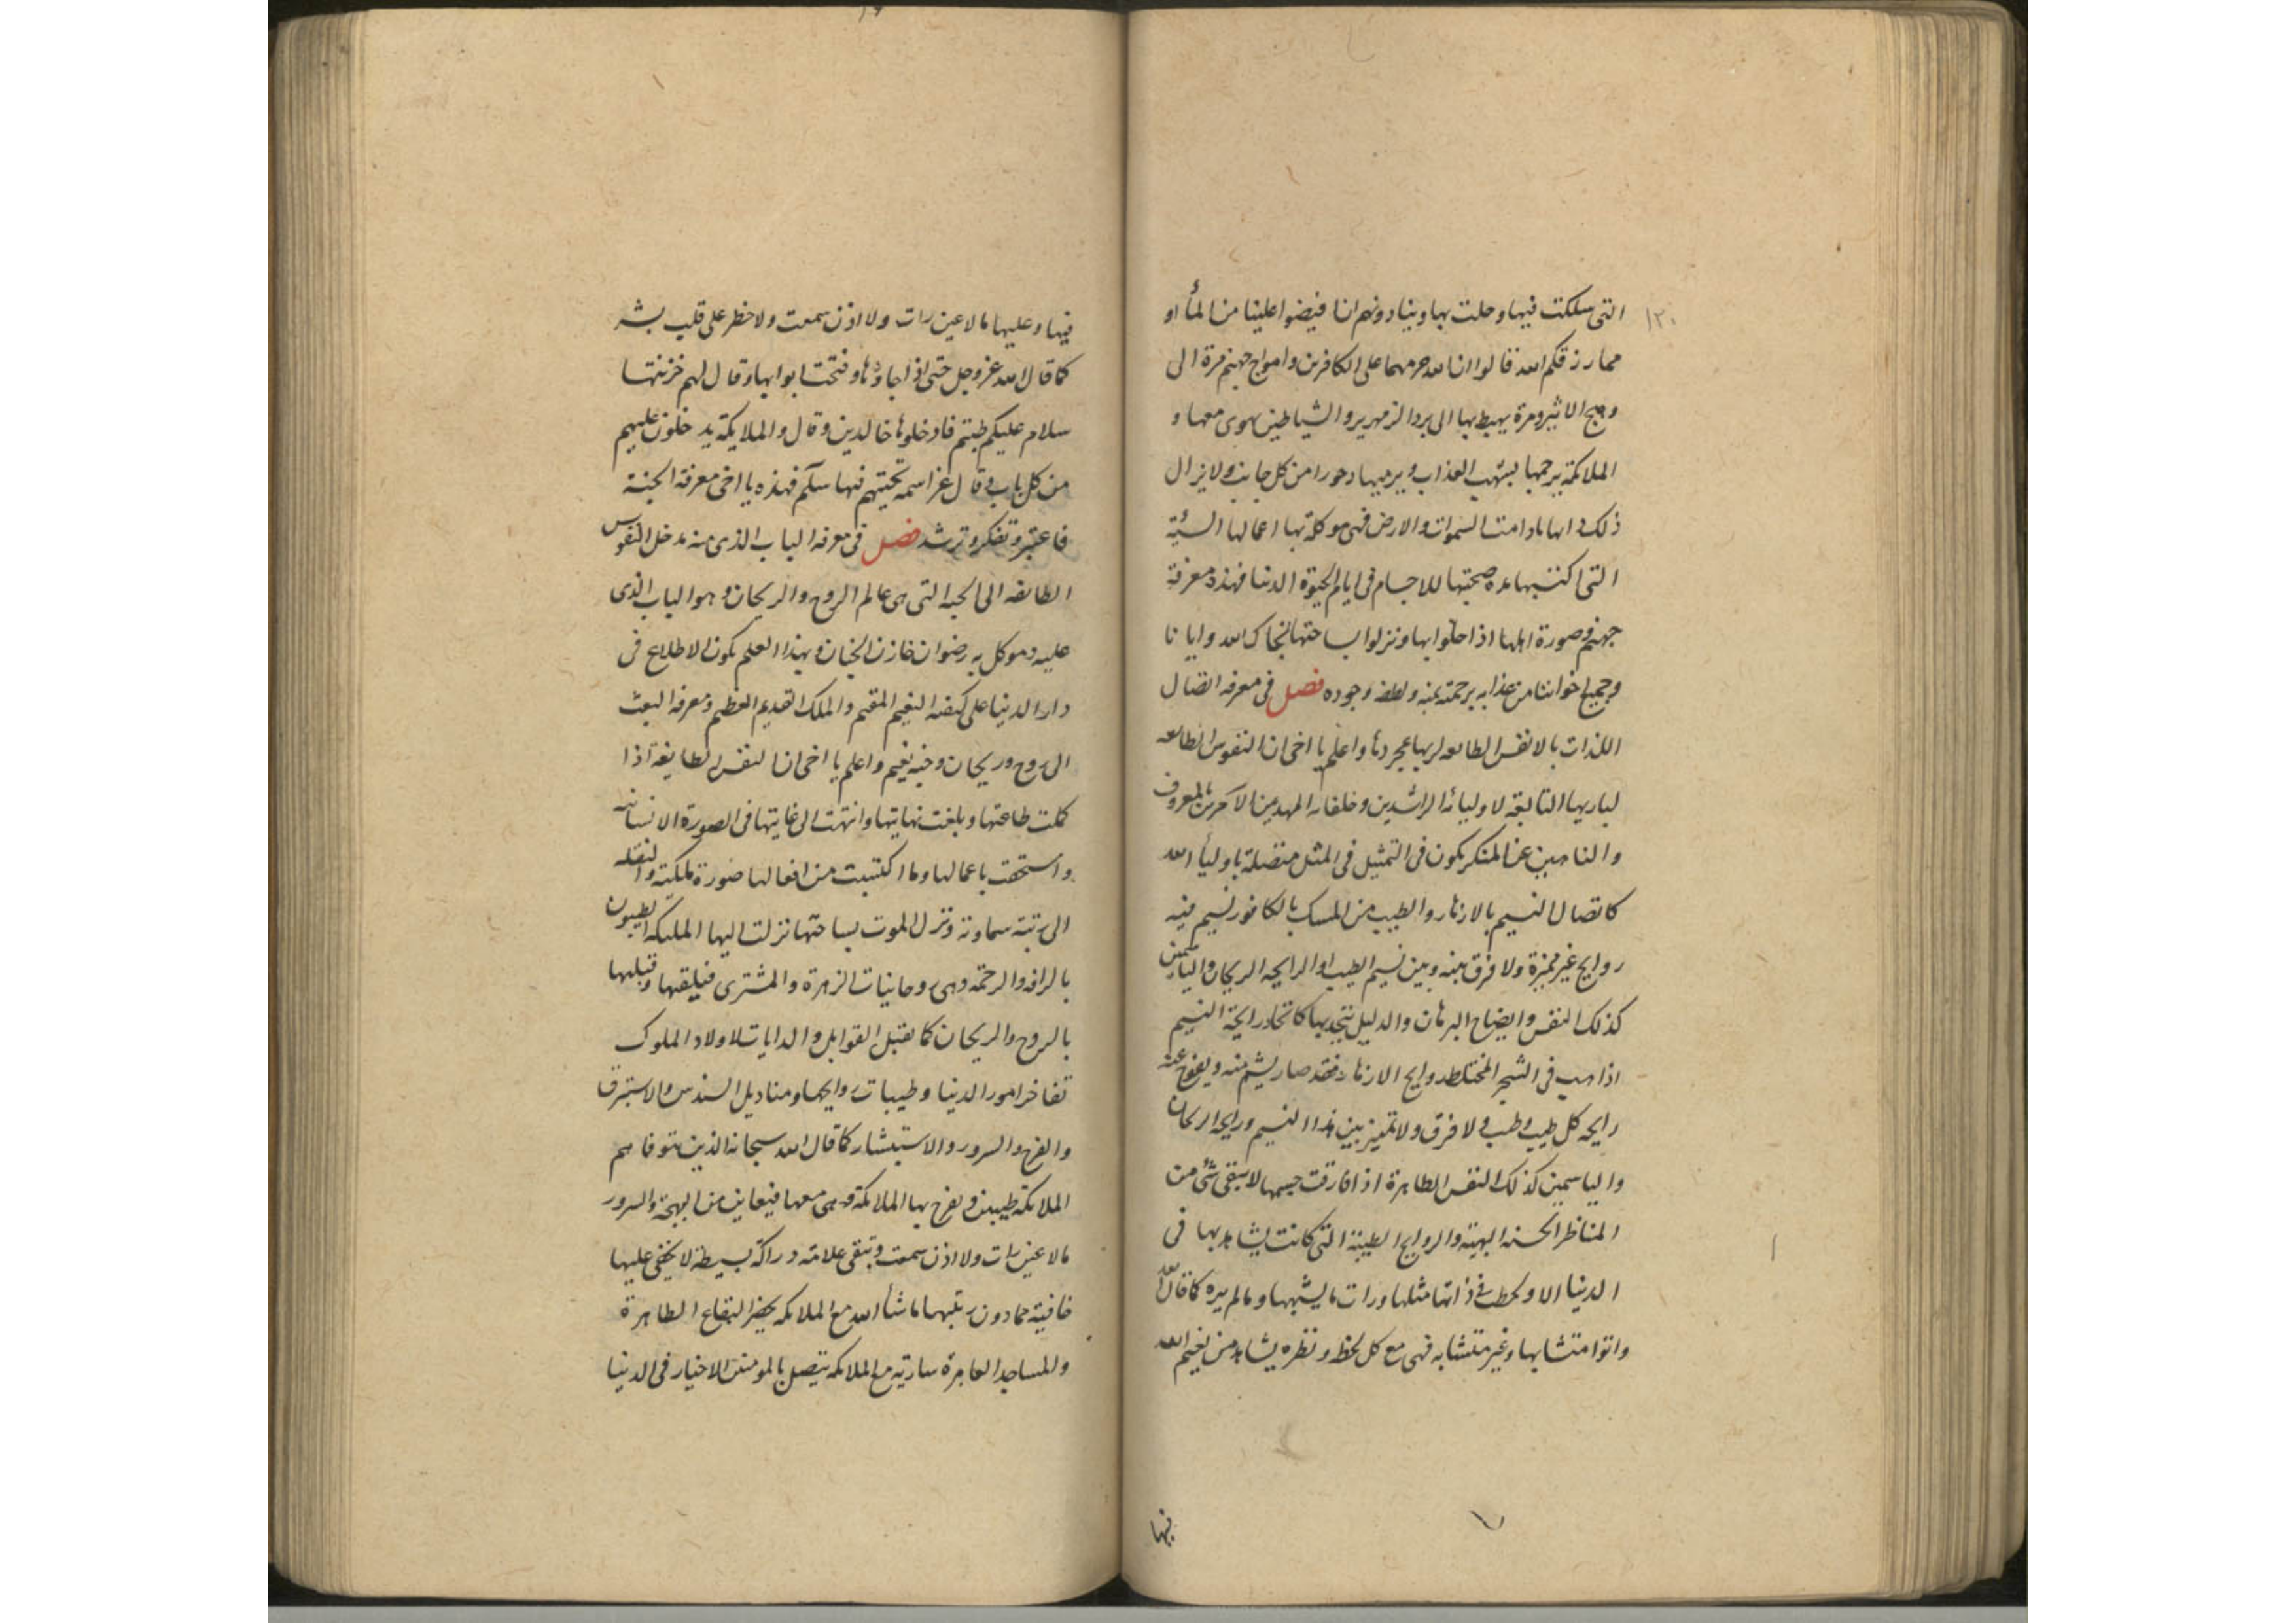 ١٢٠
التى سلكت فيها وحلت بها وبينا دونهم انا فيضوا علينا من المأ او
مما رزقكم الله قالوا ان الله حرمهما على الكافرين وامواج جهنم مرة الى
وهج الاثير ومرة يهبط بها الى برد الزمهرير والشياطين يهوى معها و
الملائكة يرجمها بشهب العذاب ويرميها دحورا من كل جانب ولا يزال
ذلك دابها مادامت السموات والارض فهى موكلة بها اعمالها السيئة
التى اكتسبها مدة صحبتها للاجسام فى ايام الحيوة الدنيا فهذه معرفة
جهنم وصورة اهلها اذا حلوا بها ونزلوا بساحتها نجاك الله وايانا
وجميع اخواننا من عذابه برحمته بمنه ولطفه وجوده فصل فى معرفه اتصال
اللذات بالانفس الطائعه لربها بمجردها واعلم يا اخى ان النفوس الطائعه
لباريها التابعة لاوليائه الراشدين وخلفائه المهديين الآمرين بالمعروف
والناهيين عن المنكر يكون فى التمثيل فى المثل متصلة باوليأ الله
كاتصال النسيم بالازهار والطيب من المسك بالكافور نسيم فيه
روايح غير مميزة ولا فرق بينه وبين نسيم الطيب او الرايحه الريحان والياسمين
كذلك النفس وايضاح البرهان والدليل يتحد بها كاتحاد رايحة النسيم
اذا هب فى الشجر المختلط روايح الازهار فقد صار يشم منه ويفوح عنه
رايحه كل طيب وطيب ولا فرق ولا تمييز بين هذا النسيم ورايحه الريحان
والياسمين كذلك النفس الطاهرة اذا فارقت جسمها لا يبقى شئ من
المناظر الحسنه البهية والروايح الطيبة التى كانت يشاهدها فى
الدنيا الا ولحظت فى ذاتها مثلها ورات ما يشبهها وما لم يره كما قال الله
واتوا متشابها وغير متشابه فهى مع كل لحظه ونظره يشاهد من نعيم الله
فيها
فيها وعليها ما لا عين رات ولا اذن سمعت ولا خطر على قلب بشر
كما قال الله عز وجل حتى اذا جاؤها وفتحت ابوابها وقال لهم خزنتها
سلام عليكم طبتم فادخلوها خالدين وقال والملايكة يدخلون عليهم
من كل باب وقال عز اسمه تحيتهم فيها سلم فهذه يا اخى معرفة الجنة
فاعتبر وتفكر وترشد فصل فى معرفه الباب الذى منه مدخل النفوس
الطايعه الى الجنه التى هى عالم الروح والريحان وهو الباب الذى
عليه وموكل به رضوان خازن الجنان وبهذا العلم يكون الاطلاع فى
دار الدنيا على كيفيه النعيم المقيم والملك القديم العظيم ومعرفه البعث
الى روح وريحان وجنه نعيم واعلم يا اخى ان النفس الطايعة اذا
كملت طاعتها وبلغت نهايتها وانتهت الى غايتها فى الصورة الانسانيه
واستحقت باعمالها وما اكتسبت من افعالها صورة ملكية والنقله
الى رتبة سماوية ونزل الموت بساحتها نزلت اليها المليكه الطيبون
بالرافه والرحمة وهى روحانيات الزهرة والمشترى فيلقيها وقبلها
بالروح والريحان كما يقبل القوابل والدايات لاولاد الملوك
تفاخر امور الدنيا وطيبات روايحها ومناديل السندس والاستبرق
والفرح والسرور والاستبشار كما قال الله سبحانه الذين تتوفاهم
الملائكة طيبين ويفرح بها الملائكة وهى معها فيعاين من البهجة والسرور
ما لا عين رات ولا اذن سمعت وتبقى علامة دراكة بسيطة لا يخفى عليها
خافية مما دون رتبتها ما شأ الله مع الملائكه يحضر البقاع الطاهرة
والمساجد العامرة سارية مع الملائكه يتصل بالمومنين الاخيار فى الدنيا